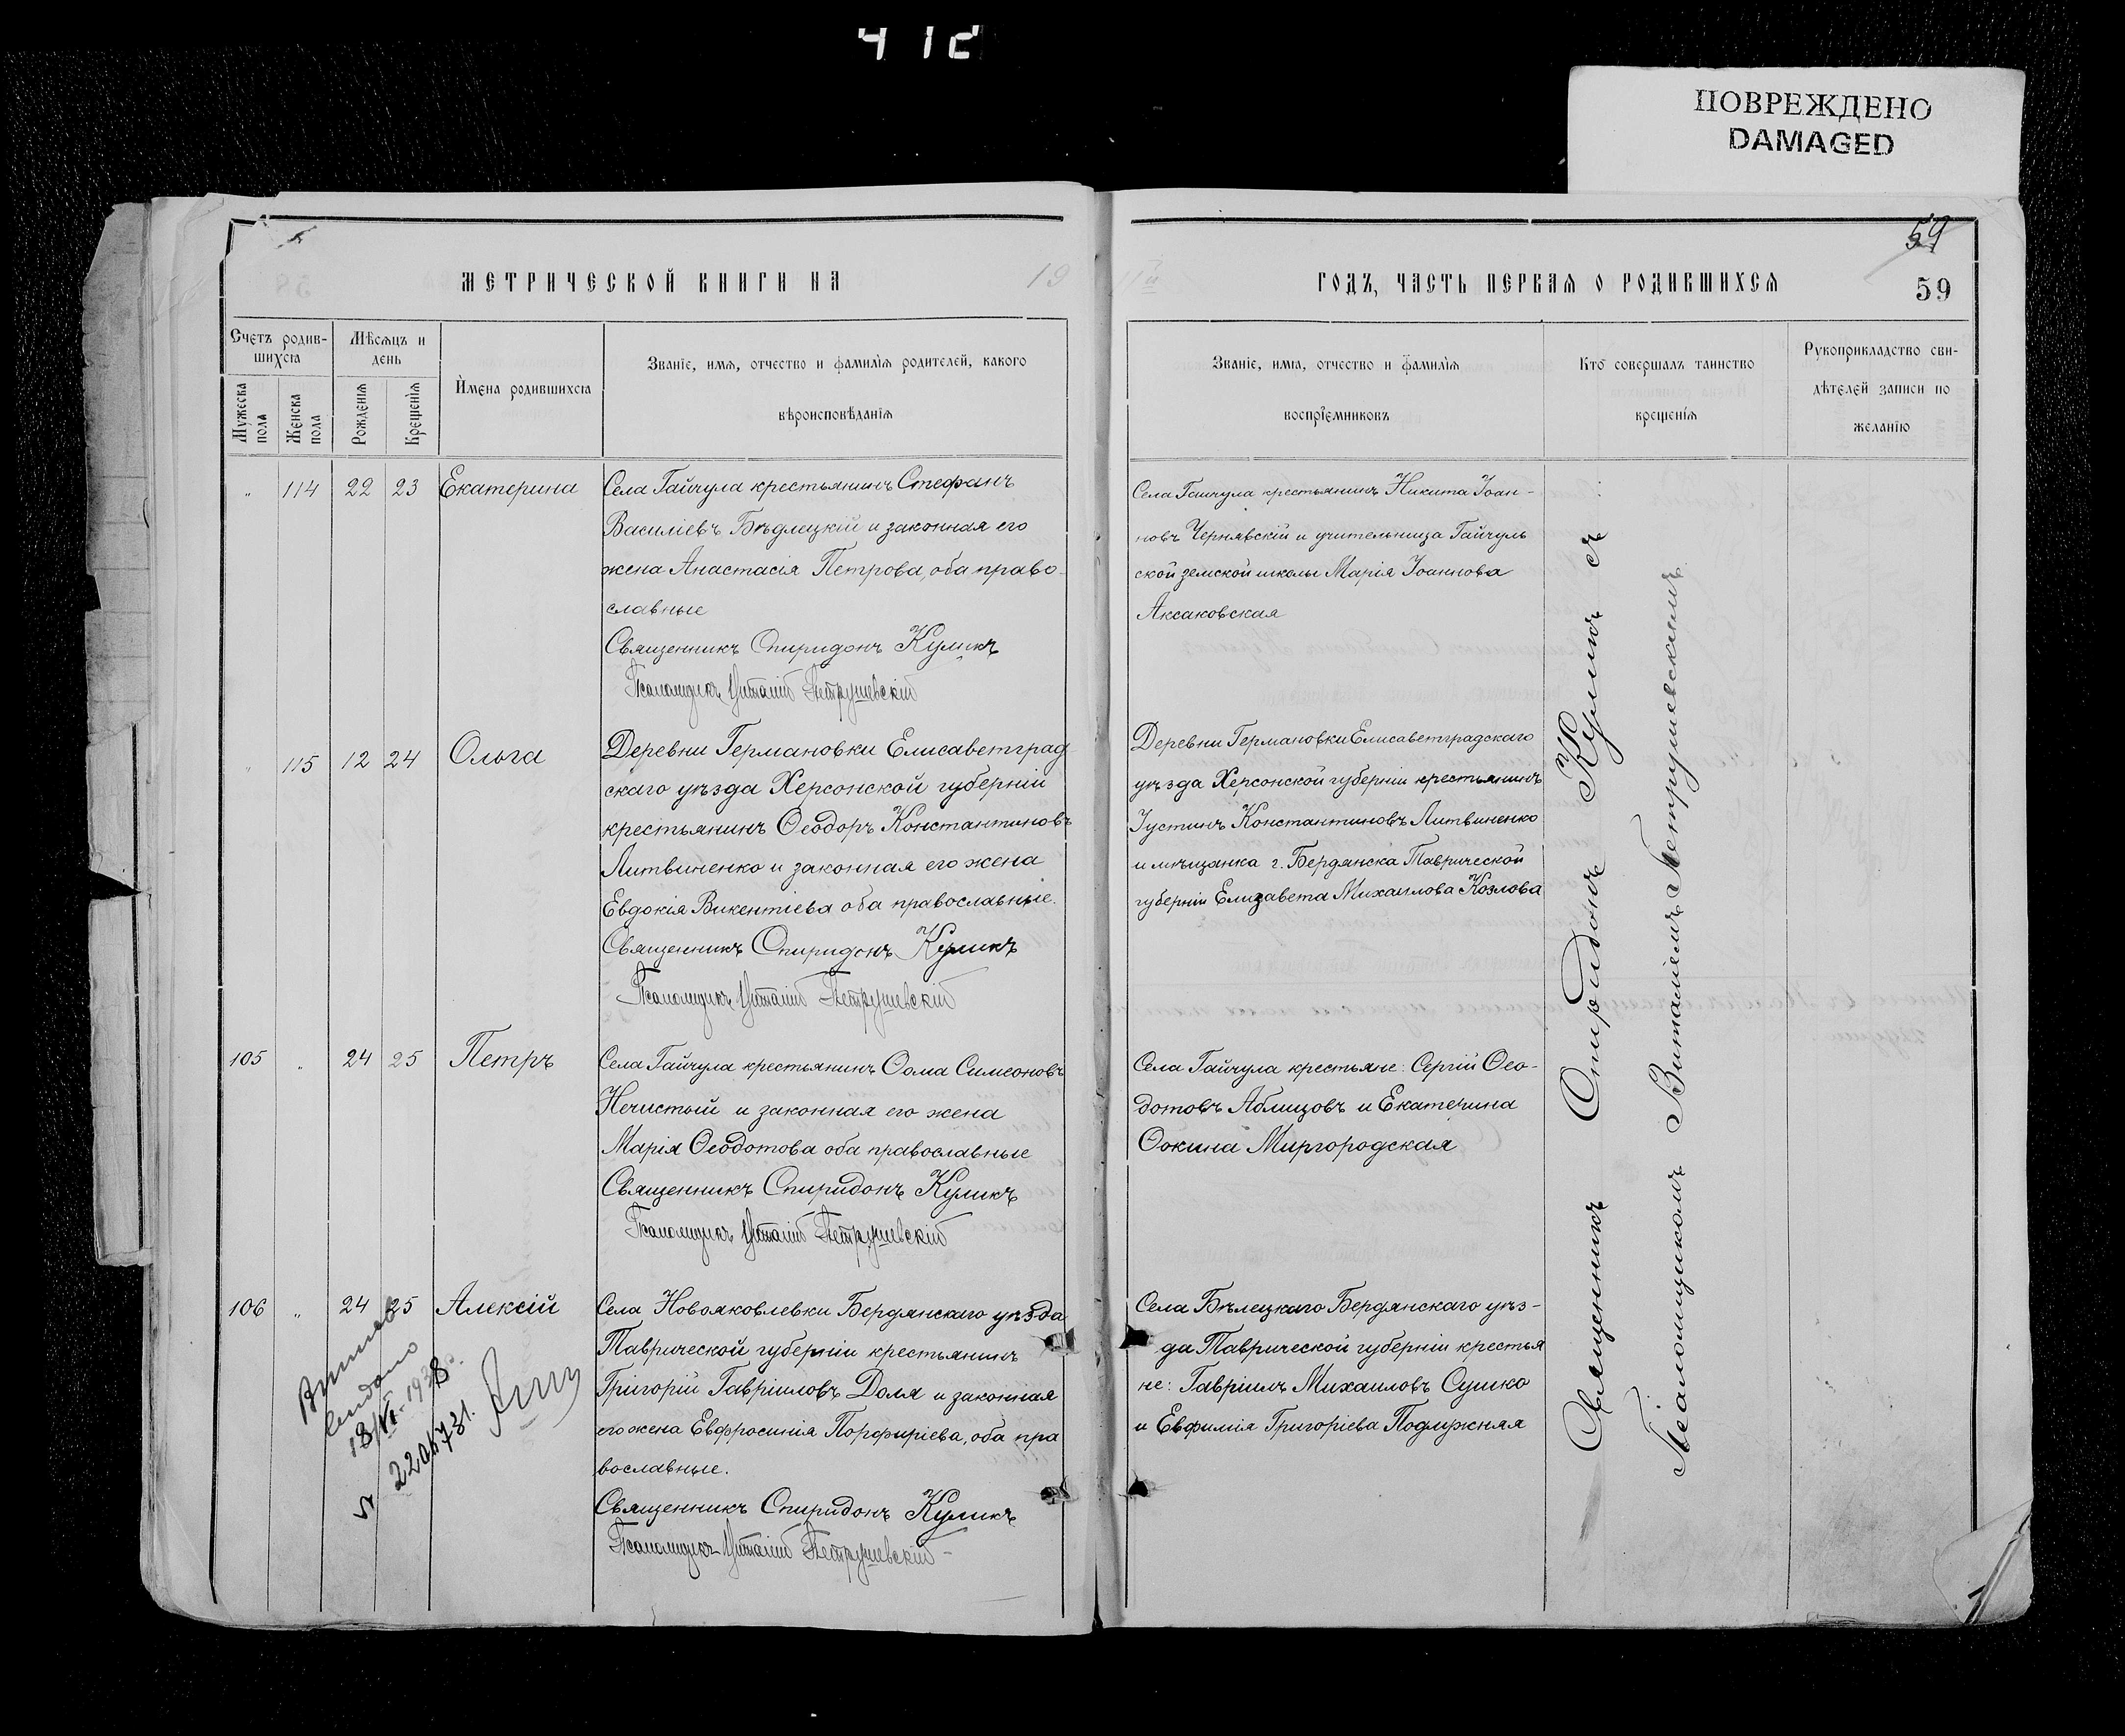 412
ПОВРЕЖДЕНО
DAMAGED
МЕТРИЧЕСКОЙ КНИГИ НА 19
ГОДЪ, ЧАСТЬ ПЕРВАЯ О РОДИВШИХСЯ
59
59
Счетъ родив-
шихся
Мужеска пола
Женска пола
Мѣсяцъ и
день
Рожденія
Крещенія
Имена родившихся
Званіе, имя, отчество и фамилія родителей, какого
вѣроисповѣданія
Званіе, имя, отчество и фамилія
воспріемниковъ
Кто совершалъ таинство
крещенія
Рукоприкладство сви-
дѣтелей записи по
желанію
" 114 22 23 Екатерина
Села Гайчула крестьянинъ Стефанъ
Василіевъ Бѣдлецкій и законная его
жена Анастасія Петрова, оба право-
славные
Священникъ Спиридонъ Куликъ
Псаломщикъ Виталій Петрушевскій
Села Гайчула крестьянинъ Никита Іоан-
новъ Чернявскій и учительница Гайчуль
ской земской школы Марія Іоаннова
Аксаковская
" 115 12 24 Ольга
Деревни Германовки Елисаветград
скаго уѣзда Херсонской губерніи
крестьянинъ Ѳеодоръ Константиновъ
Литвиненко и законная его жена
Евдокія Викентіева оба православные.
Священникъ Спиридонъ Куликъ
Псаломщикъ Виталій Петрушевскій
Деревни Германовки Елисаветградскаго
уѣзда Херсонской губерніи крестьянинъ
Іустинъ Константиновъ Литвиненко
и мѣщанка г. Бердянска Таврической
губерніи Елизавета Михаилова Козлова
105 " 24 25 Петръ
Села Гайчула крестьянинъ Ѳома Симеоновъ
Нечистый и законная его жена
Марія Ѳеодотова оба православные
Священникъ Спиридонъ Куликъ
Псаломщикъ Виталій Петрушевскій
Села Гайчула крестьяне: Сергій Ѳео-
дотовъ Аблицовъ и Екатерина
Ѳокина Миргородская
106 " 24 25 Алексій
Села Новояковлевки Бердянскаго уѣзда
Таврической губерніи крестьянинъ
Григорій Гавріиловъ Доля и законная
его жена Евфросинія Порфиріева, оба пра
вославные.
Священникъ Спиридонъ Куликъ
Псаломщикъ Виталій Петрушевскій
Села Бѣлецкаго Бердянскаго уѣз-
да Таврической губерніи крестья
не: Гавріилъ Михаиловъ Сушко
и Евфимія Григоріева Подлужняя
18/VI-1938.
Священникъ Спиридонъ Куликъ съ
Псаломщикомъ Виталіемъ Петрушевскимъ